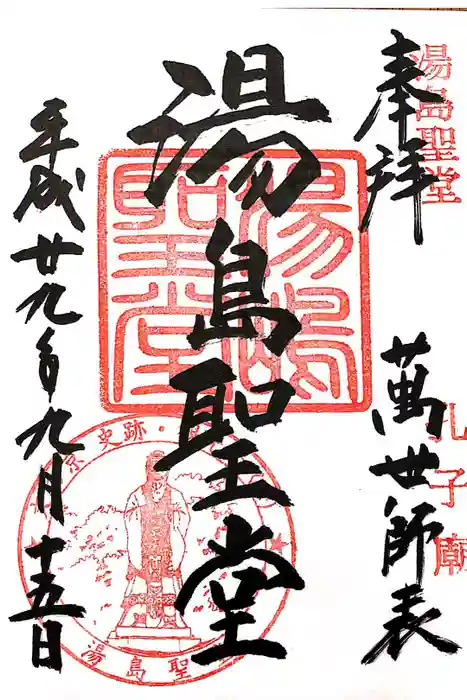 奉拝
湯島聖堂
萬世師表
孔子廟
湯島聖堂
湯島聖堂
平成廿九年九月十五日
史跡
湯島聖